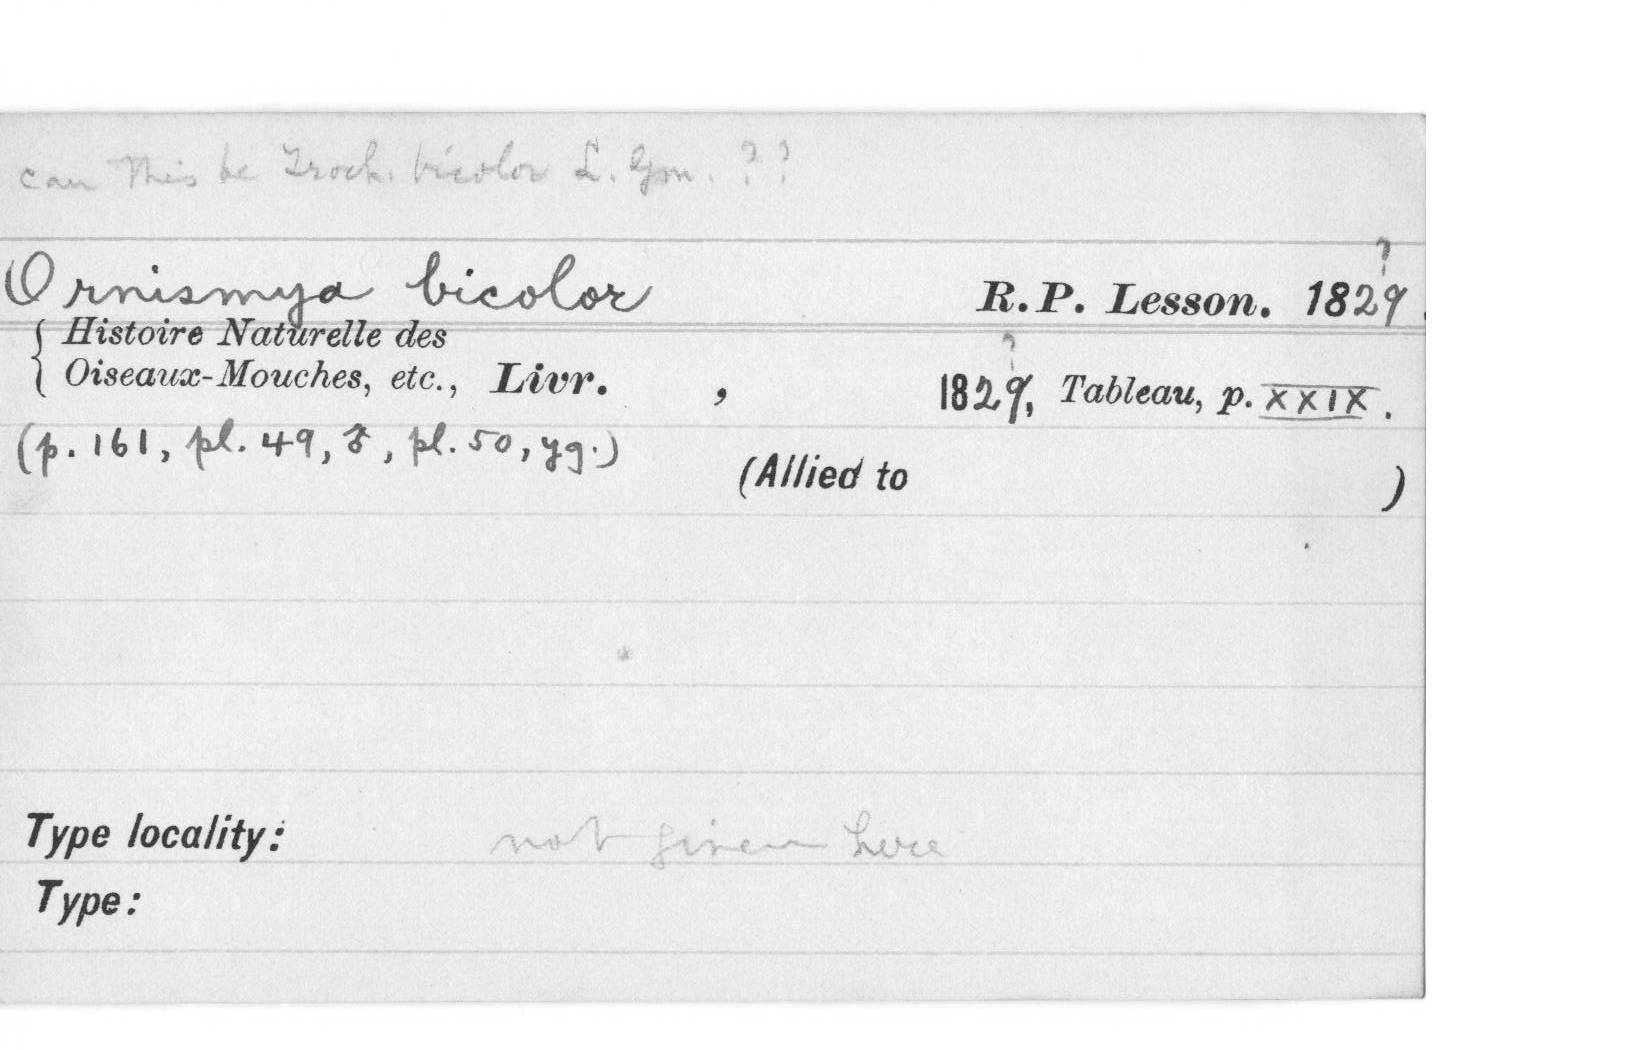 can this be Troch. bicolor L. Gm. ? ?
Ornismya bicolor R. P. Lesson. 1829?.
{ Histoire Naturelle des
Oiseaux-Mouches, etc., Livr. , 1829?, Tableau, p. XXIX.
(p. 161, pl. 49, ♂, pl. 50, yg.)
(Allied to )
Type locality: not given here
Type: